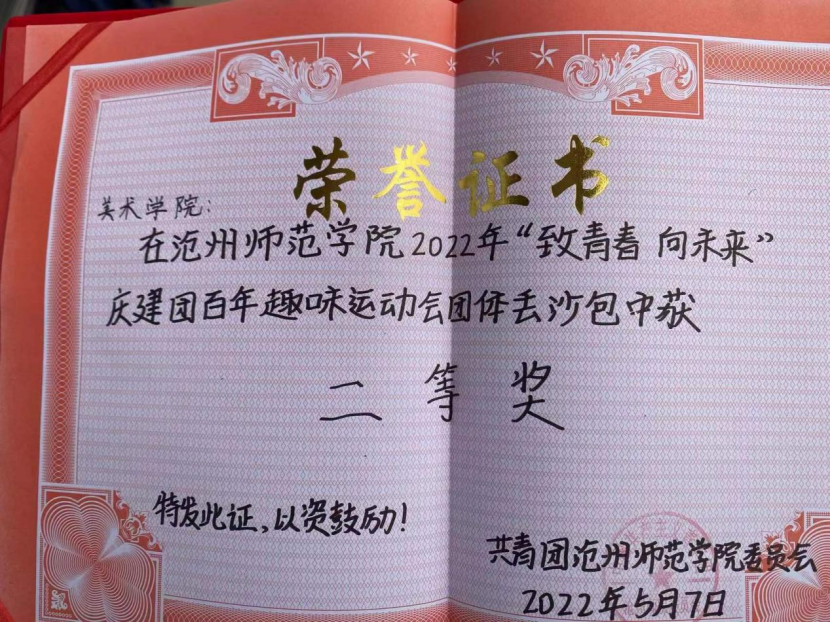 荣誉证书
美术学院：
在沧州师范学院2022年“致青春 向未来”
庆建团百年趣味运动会团体丢沙包中获
二等奖
特发此证，以资鼓励！
共青团沧州师范学院委员会
2022年5月7日